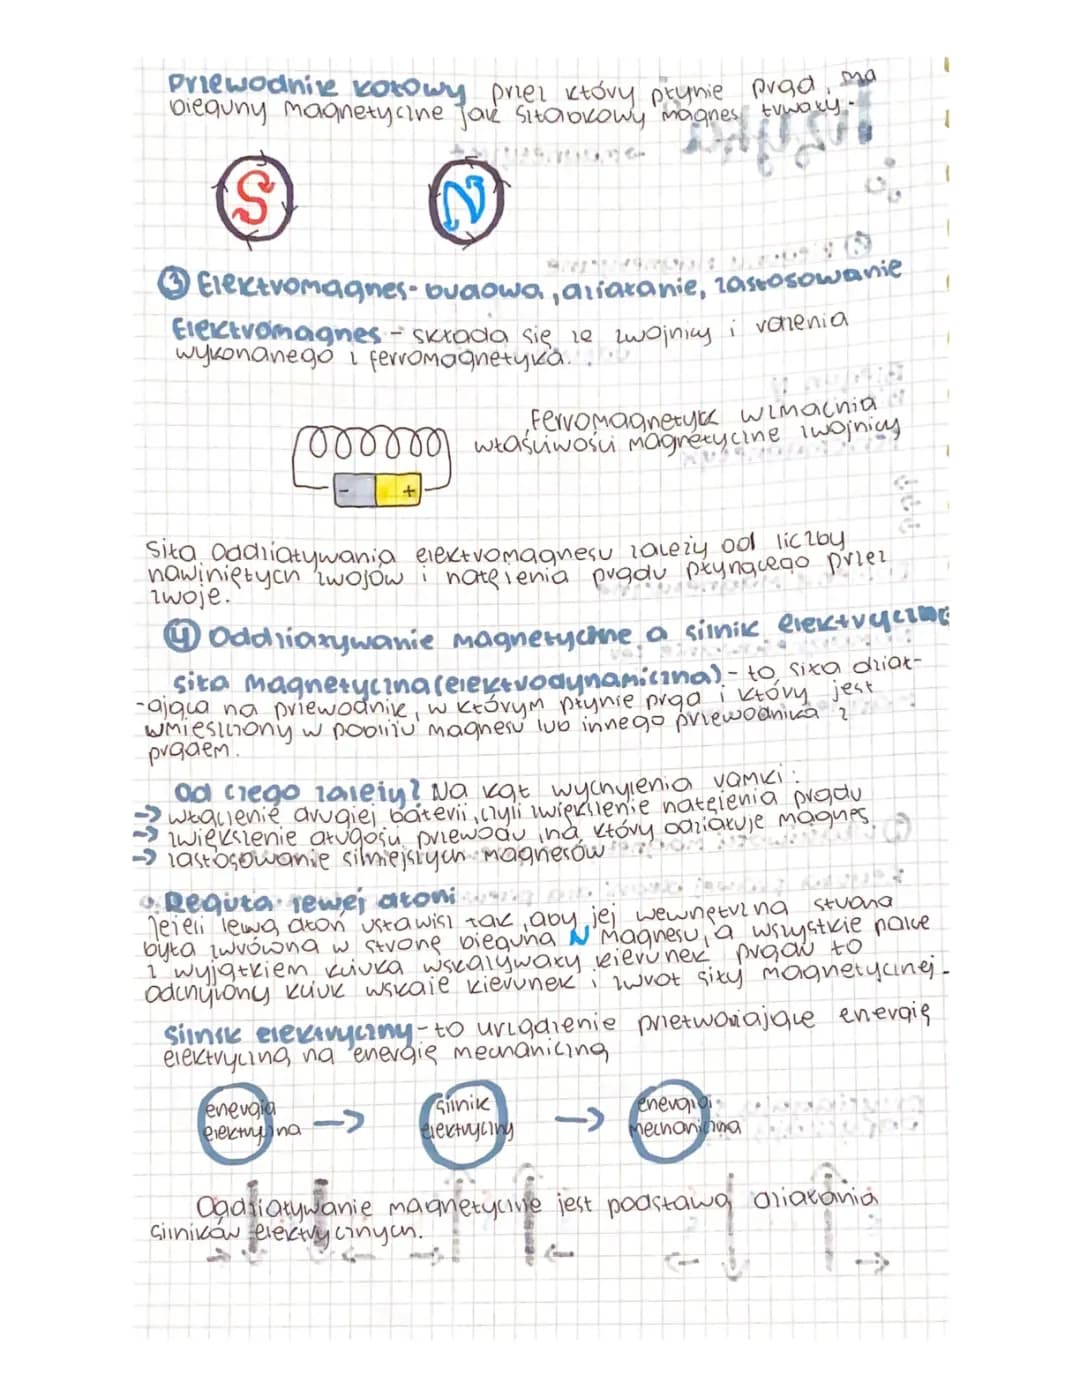 Przewodnik kołowy przez który płynie prąd, ma
bieguny magnetyczne jak sztabkowy magnes trwały.
S
N
3 Elektromagnes - budowa, działanie, zastosowanie
Elektromagnes - składa się ze zwojnicy i rdzenia
wykonanego z ferromagnetyka.
Ferromagnetyk wzmacnia
właściwości magnetyczne zwojnicy
- +
Siła oddziaływania elektromagnesu zależy od liczby
nawiniętych zwojów i natężenia prądu płynącego przez
zwoje.
4 Oddziaływanie magnetyczne a silnik elektryczny
Siła magnetyczna (elektrodynamiczna) - to siła dział-
-ająca na przewodnik, w którym płynie prąd i który jest
umieszczony w pobliżu magnesu lub innego przewodnika z
prądem.
Od czego zależy? Na kąt wychylenia ramki:
→ włączenie drugiej baterii, czyli zwiększenie natężenia prądu
→ zwiększenie długości przewodu, na który oddziałuje magnes
→ zastosowanie silniejszych magnesów
Reguła lewej dłoni
Jeżeli lewą dłoń ustawisz tak, aby jej wewnętrzna strona
była zwrócona w stronę bieguna N magnesu, a wszystkie palce
z wyjątkiem kciuka wskazywały kierunek prądu to
odchylony kciuk wskaże kierunek i zwrot siły magnetycznej.
Silnik elektryczny - to urządzenie przetwarzające energię
elektryczną na energię mechaniczną
energia → silnik → energia
elektryczna elektryczny mechaniczna
Oddziaływanie magnetyczne jest podstawą działania
silników elektrycznych.